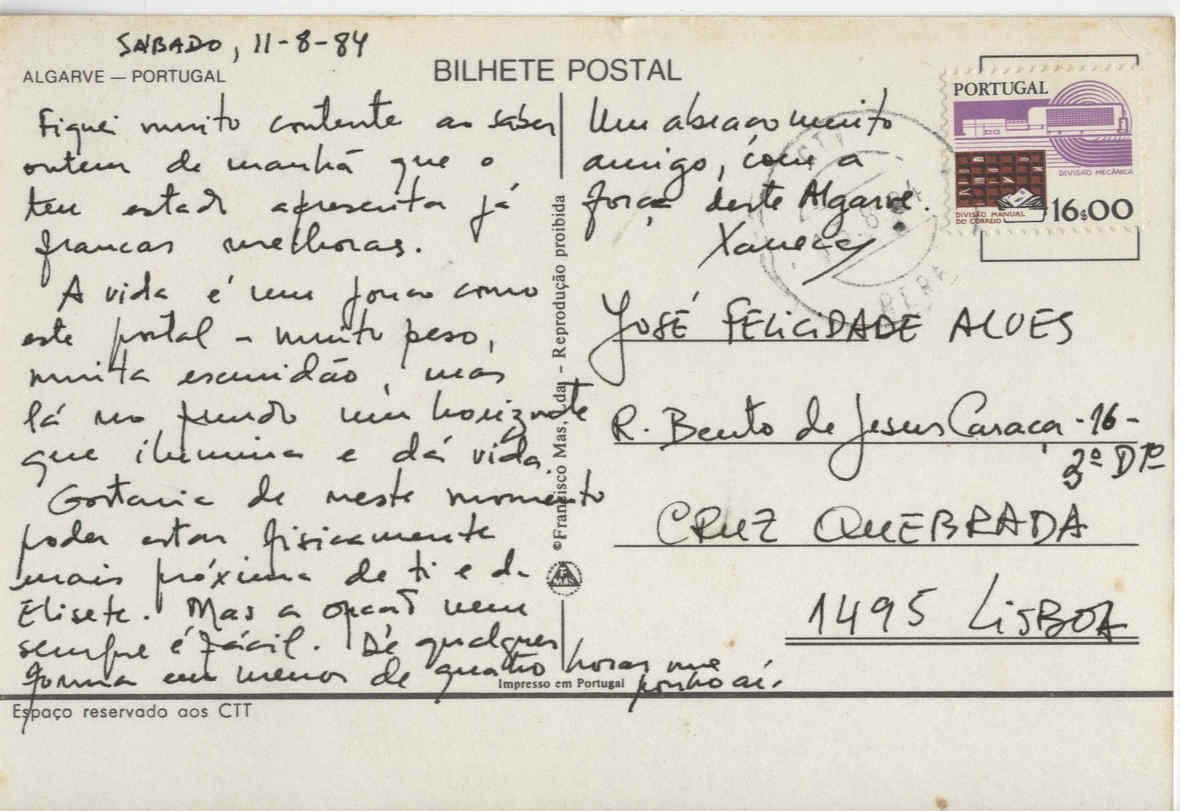 SÁBADO, 11-8-84
ALGARVE — PORTUGAL
BILHETE POSTAL
Fiquei muito contente ao saber
ontem de manhã que o
teu estado apresenta já
francas melhoras.
A vida é um pouco como
este postal - muito peso,
muita escuridão, mas
lá no fundo um horizonte
que ilumina e dá vida.
Gostaria de neste momento
poder estar fisicamente
mais próxima de ti e da
Elisete. Mas a opção nem
sempre é fácil. De qualquer
forma em menos de quatro horas me
ponho aí.
Um abraço muito
amigo, com a
força deste Algarve.
©Francisco Mas, Lda. - Reprodução proibida
Impresso em Portugal
PORTUGAL
DIVISÃO MECÂNICA
DIVISÃO MANUAL
DO CORREIO
16$00
JOSÉ FELICIDADE ALVES
R. Bento de Jesus Caraça - 16 -
3º DTº
CRUZ QUEBRADA
1495 LISBOA
Espaço reservado aos CTT